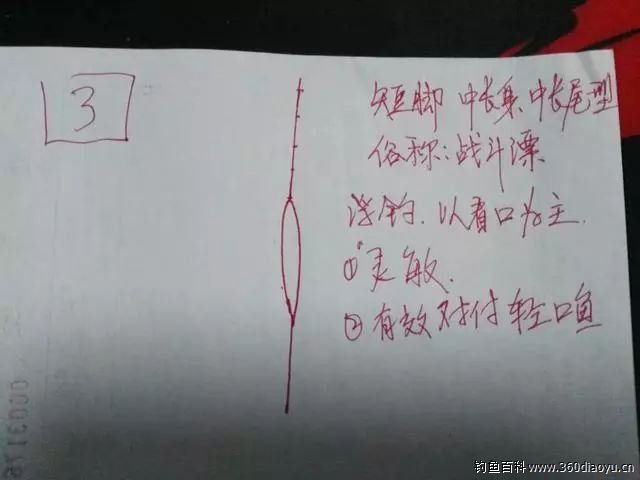 3
短脚 中长身 中长尾型
俗称:战斗漂
浮钓.以看口为主.
①灵敏.
②有效对付轻口鱼
0003118
钓鱼百科www.360diaoyu.cn